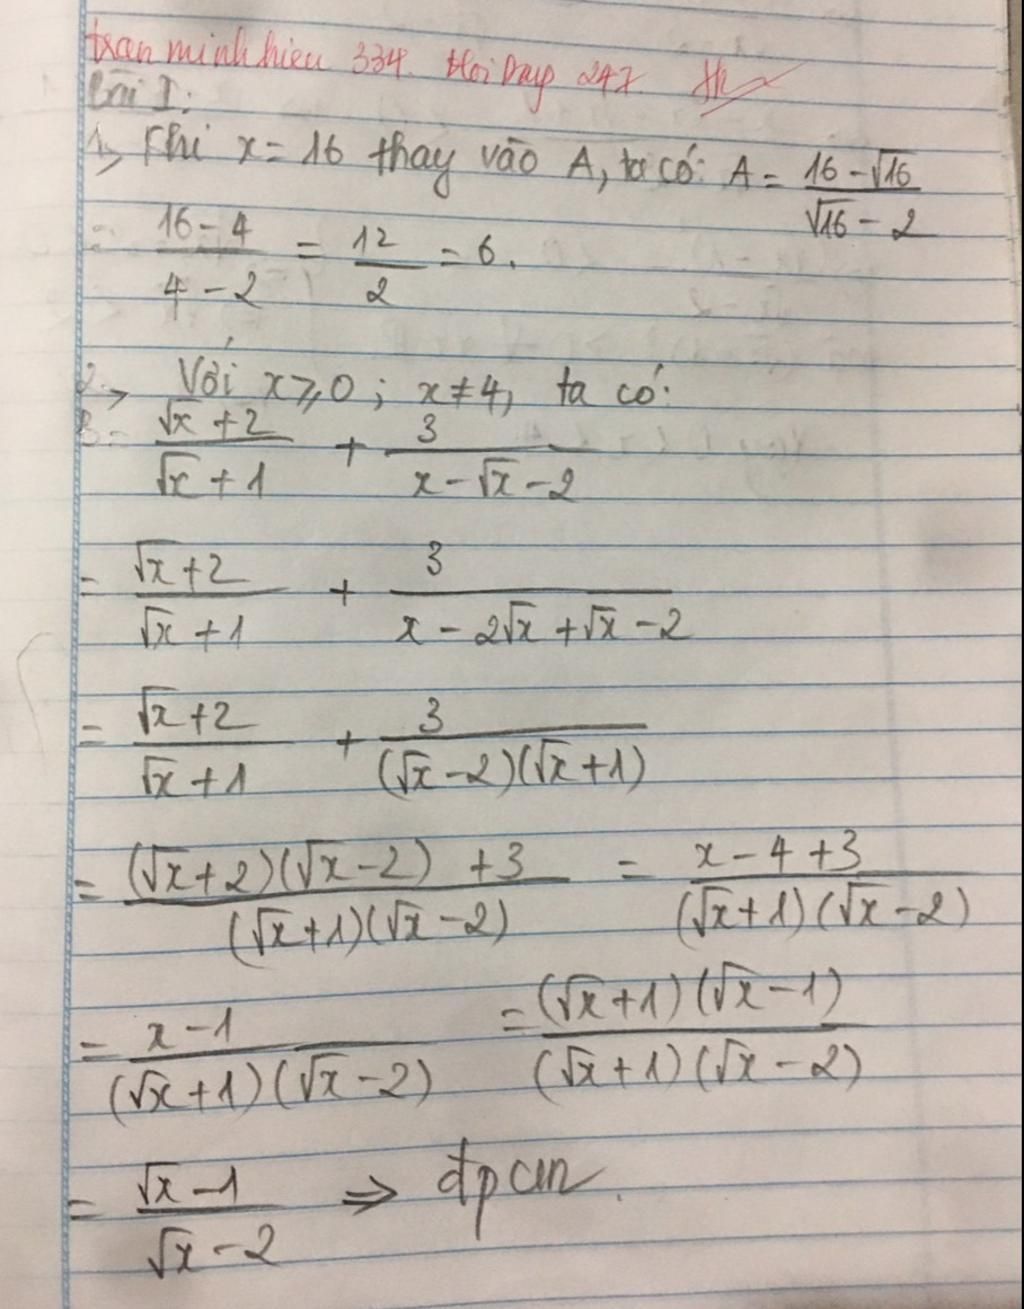 tranminhhieu 334. Hoi Dap 247
Bài I:
1, Khi x = 16 thay vào A, ta có: A = (16 - √16)/(√16 - 2)
= (16 - 4)/(4 - 2) = 12/2 = 6.
2, Với x ≥ 0 ; x ≠ 4, ta có:
B = (√x + 2)/(√x + 1) + 3/(x - √x - 2)
= (√x + 2)/(√x + 1) + 3/(x - 2√x + √x - 2)
= (√x + 2)/(√x + 1) + 3/((√x - 2)(√x + 1))
= ((√x + 2)(√x - 2) + 3)/((√x + 1)(√x - 2)) = (x - 4 + 3)/((√x + 1)(√x - 2))
= (x - 1)/((√x + 1)(√x - 2)) = ((√x + 1)(√x - 1))/((√x + 1)(√x - 2))
= (√x - 1)/(√x - 2) ⇒ đpcm.